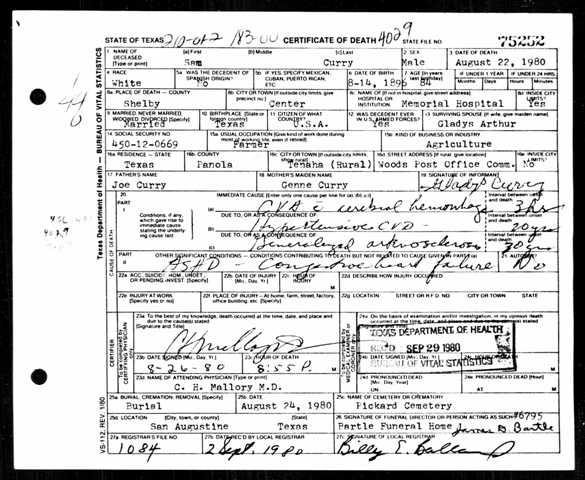 STATE OF TEXAS 210-02 183-00 CERTIFICATE OF DEATH 4029 STATE FILE NO. 75252
1. NAME OF DECEASED (Type or print) (a) First (b) Middle (c) Last 2. SEX 3. DATE OF DEATH
Sam Curry Male August 22, 1980
4. RACE 5a. WAS THE DECEDENT OF SPANISH ORIGIN? 5b. IF YES, SPECIFY MEXICAN, CUBAN, PUERTO RICAN, ETC 6. DATE OF BIRTH 7. AGE (In years last birthday) IF UNDER 1 YEAR IF UNDER 24 HRS.
White No 8-14, 1896 84 Months Days Hours Min
8a. PLACE OF DEATH - COUNTY 8b. CITY OR TOWN (If outside city limits, give precinct no.) 8c. NAME OF (If not in hospital, give street address) HOSPITAL OR INSTITUTION 8d. INSIDE CITY LIMITS?
Shelby Center Memorial Hospital Yes
9. MARRIED, NEVER MARRIED, WIDOWED, DIVORCED (Specify) 10. BIRTHPLACE (State or foreign country) 11. CITIZEN OF WHAT COUNTRY? 12. WAS DECEASED EVER IN U.S. ARMED FORCES? 13. SURVIVING SPOUSE (If wife, give maiden name)
Married Texas U.S.A. Yes Gladys Arthur
14. SOCIAL SECURITY NO. 15a. USUAL OCCUPATION (Give kind of work done during most of working life, even if retired) 15b. KIND OF BUSINESS OR INDUSTRY
450-12-0669 Farmer Agriculture
16a. RESIDENCE - STATE 16b. COUNTY 16c. CITY OR TOWN (If outside city limits, show rural) 16d. STREET ADDRESS (If rural, give location) 16e. INSIDE CITY LIMITS?
Texas Panola Tenaha (Rural) Woods Post Office Comm. No
17. FATHER'S NAME 18. MOTHER'S MAIDEN NAME 19. SIGNATURE OF INFORMANT
Joe Curry Genne Curry Gladys Curry
20. PART I IMMEDIATE CAUSE (Enter only one cause per line for (a), (b), and (c).)
CVA c cerebral hemorrhage 3 hrs
Conditions, if any, which gave rise to immediate cause stating the underlying cause last
DUE TO, OR AS A CONSEQUENCE OF
Hypertensive CVD 20 yrs
DUE TO, OR AS A CONSEQUENCE OF
Generalized arteriosclerosis 30 yrs
CAUSE OF DEATH
PART II OTHER SIGNIFICANT CONDITIONS: CONDITIONS CONTRIBUTING TO DEATH BUT NOT RELATED TO CAUSE GIVEN IN PART I (a) 21. AUTOPSY?
ASHD - Congestive heart failure No
22a. ACC., SUICIDE, HOM., UNDET., OR PENDING INVEST. (Specify) 22b. DATE OF INJURY (Mo., Day, Yr.) 22c. HOUR OF INJURY 22d. DESCRIBE HOW INJURY OCCURRED
22e. INJURY AT WORK 22f. PLACE OF INJURY - At home, farm, street, factory, office building, etc. (Specify) 22g. LOCATION STREET OR R.F.D. NO. CITY OR TOWN STATE
23a. To the best of my knowledge, death occurred at the time, date, and place and due to the cause(s) stated (Signature and Title)
24a. On the basis of examination and/or investigation, in my opinion death occurred at the time, date, and place and due to the cause(s) stated (Signature and Title)
TEXAS DEPARTMENT OF HEALTH
REC'D SEP 29 1980
BUREAU OF VITAL STATISTICS
23b. DATE SIGNED (Mo., Day, Yr.) 23c. HOUR OF DEATH 24b. DATE SIGNED (Mo., Day, Yr.) 24c. HOUR OF DEATH
8-26-80 8:55 P. M
23d. NAME OF ATTENDING PHYSICIAN (Type or Print) 24d. PRONOUNCED DEAD (Mo., Day, Yr.) 24e. PRONOUNCED DEAD (Hour)
C. H. Mallory M.D. ON AT M
25a. BURIAL, CREMATION, REMOVAL (Specify) 25b. DATE 25c. NAME OF CEMETERY OR CREMATORY
Burial August 24, 1980 Pickard Cemetery
25d. LOCATION (City, town, or county) (State) 26. SIGNATURE OF FUNERAL DIRECTOR OR PERSON ACTING AS SUCH #6795
San Augustine Texas Partle Funeral Home
27a. REGISTRAR'S FILE NO. 27b. DATE REC'D BY LOCAL REGISTRAR 27c. SIGNATURE OF LOCAL REGISTRAR
1084 2 Sept. 1980
Texas Department of Health - BUREAU OF VITAL STATISTICS
VS-112, REV. 1/80
4029